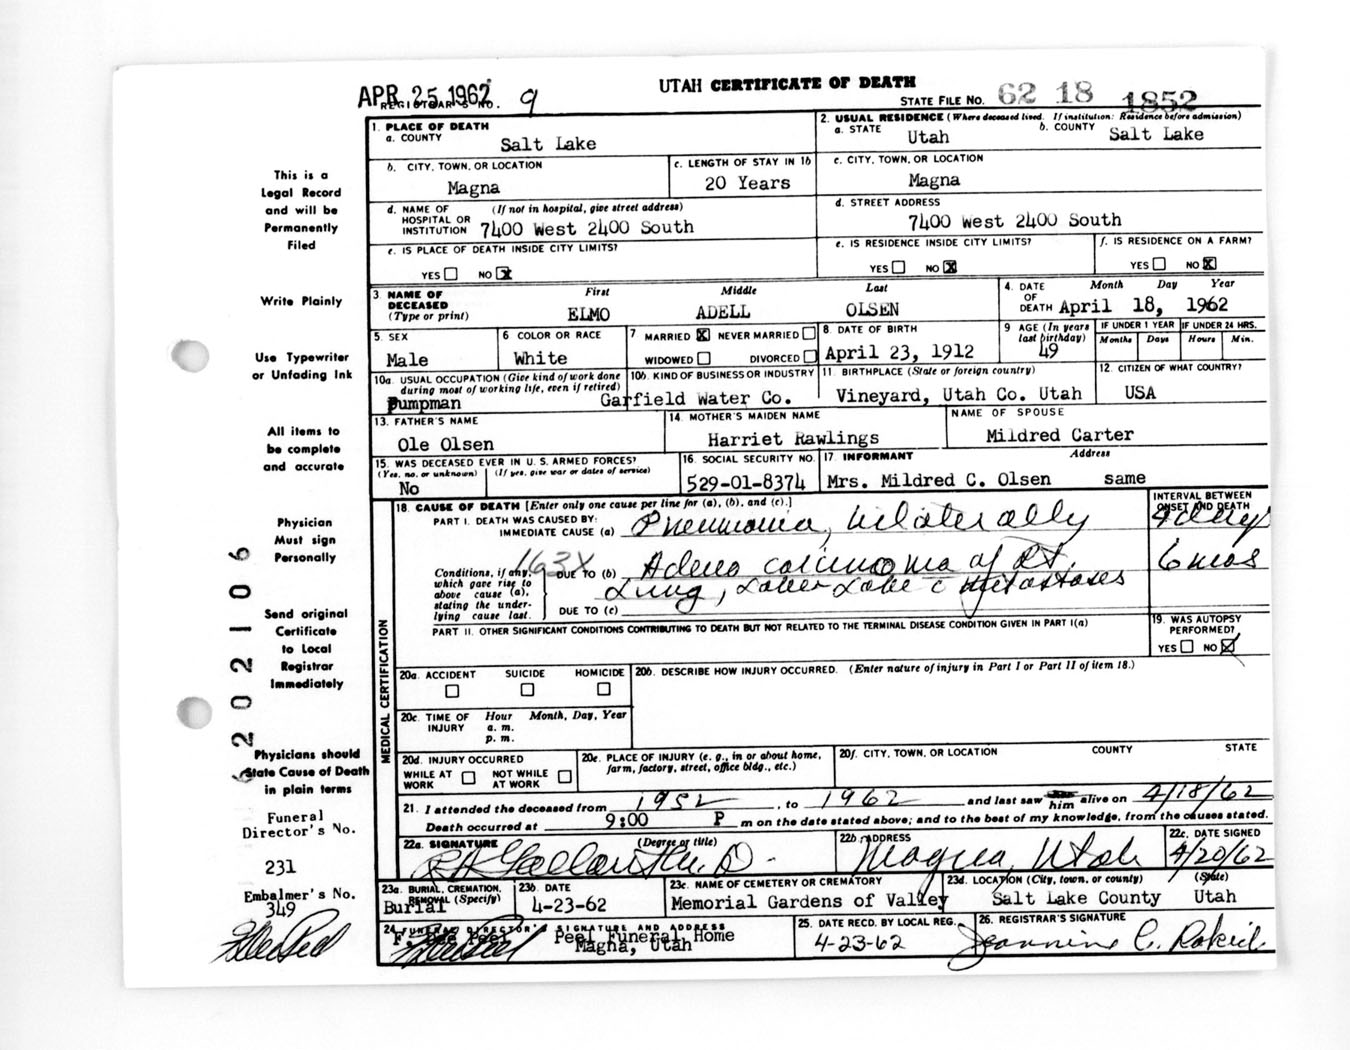 APR 25 1962
REGISTRAR'S NO. 9
UTAH CERTIFICATE OF DEATH
STATE FILE NO. 62 18 1852
This is a
Legal Record
and will be
Permanently
Filed
Write Plainly
Use Typewriter
or Unfading Ink
All items to
be complete
and accurate
Physician
Must sign
Personally
Send original
Certificate
to Local
Registrar
Immediately
Physicians should
State Cause of Death
in plain terms
Funeral
Director's No.
231
Embalmer's No.
349
202106
1. PLACE OF DEATH
a. COUNTY Salt Lake
2. USUAL RESIDENCE (Where deceased lived. If institution: Residence before admission)
a. STATE Utah b. COUNTY Salt Lake
b. CITY, TOWN, OR LOCATION Magna
c. LENGTH OF STAY IN 1b 20 Years
c. CITY, TOWN, OR LOCATION Magna
d. NAME OF (If not in hospital, give street address)
HOSPITAL OR
INSTITUTION 7400 West 2400 South
d. STREET ADDRESS
7400 West 2400 South
e. IS PLACE OF DEATH INSIDE CITY LIMITS?
YES NO X
e. IS RESIDENCE INSIDE CITY LIMITS?
YES NO X
f. IS RESIDENCE ON A FARM?
YES NO X
3. NAME OF DECEASED (Type or print)
First Middle Last
ELMO ADELL OLSEN
4. DATE OF DEATH Month Day Year
April 18, 1962
5. SEX Male
6 COLOR OR RACE White
7 MARRIED X NEVER MARRIED
WIDOWED DIVORCED
8 DATE OF BIRTH
April 23, 1912
9 AGE (In years last birthday) 49
IF UNDER 1 YEAR IF UNDER 24 HRS.
Months Days Hours Min.
10a. USUAL OCCUPATION (Give kind of work done
during most of working life, even if retired)
Pumpman
10b. KIND OF BUSINESS OR INDUSTRY
Garfield Water Co.
11. BIRTHPLACE (State or foreign country)
Vineyard, Utah Co. Utah
12. CITIZEN OF WHAT COUNTRY?
USA
13. FATHER'S NAME
Ole Olsen
14. MOTHER'S MAIDEN NAME
Harriet Rawlings
NAME OF SPOUSE
Mildred Carter
15. WAS DECEASED EVER IN U.S. ARMED FORCES?
(Yes, no, or unknown) (If yes, give war or dates of service)
No
16. SOCIAL SECURITY NO.
529-01-8374
17. INFORMANT Address
Mrs. Mildred C. Olsen same
MEDICAL CERTIFICATION
18. CAUSE OF DEATH [Enter only one cause per line for (a), (b), and (c).]
INTERVAL BETWEEN
ONSET AND DEATH
PART I. DEATH WAS CAUSED BY:
IMMEDIATE CAUSE (a) Pneumonia, bilaterally 4 days
163X
Conditions, if any,
which gave rise to
above cause (a),
stating the under-
lying cause last.
DUE TO (b) Adeno carcinoma of Rt. 6 mos
Lung, Lower Lobe c Metastases
DUE TO (c)
PART II. OTHER SIGNIFICANT CONDITIONS CONTRIBUTING TO DEATH BUT NOT RELATED TO THE TERMINAL DISEASE CONDITION GIVEN IN PART I(a)
19. WAS AUTOPSY
PERFORMED?
YES NO X
20a. ACCIDENT SUICIDE HOMICIDE
20b. DESCRIBE HOW INJURY OCCURRED. (Enter nature of injury in Part I or Part II of item 18.)
20c. TIME OF INJURY Hour Month, Day, Year
a. m.
p. m.
20d. INJURY OCCURRED
WHILE AT WORK NOT WHILE AT WORK
20e. PLACE OF INJURY (e. g., in or about home,
farm, factory, street, office bldg., etc.)
20f. CITY, TOWN, OR LOCATION COUNTY STATE
21. I attended the deceased from 1952, to 1962 and last saw him alive on 4/18/62
Death occurred at 9:00 P m on the date stated above; and to the best of my knowledge, from the causes stated.
22a. SIGNATURE (Degree or title)
22b. ADDRESS
Magna, Utah
22c. DATE SIGNED
4/20/62
23a. BURIAL, CREMATION,
REMOVAL (Specify)
Burial
23b. DATE
4-23-62
23c. NAME OF CEMETERY OR CREMATORY
Memorial Gardens of Valley
23d. LOCATION (City, town, or county) (State)
Salt Lake County Utah
24 FUNERAL DIRECTOR'S SIGNATURE AND ADDRESS
Peel Funeral Home
Magna, Utah
25. DATE RECD. BY LOCAL REG.
4-23-62
26. REGISTRAR'S SIGNATURE
Jeannine C.